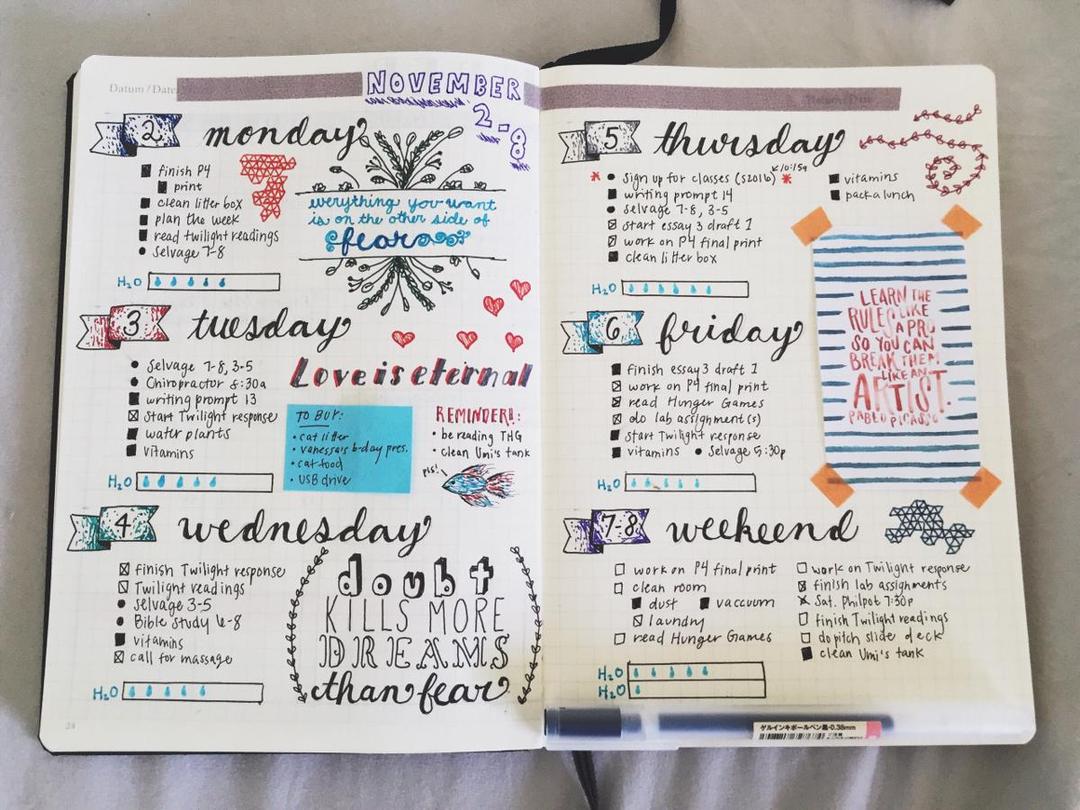 Datum / Date
NOVEMBER
2-8
2 monday
finish P4
print
clean litter box
plan the week
read twilight readings
Selvage 7-8
H2O
everything you want
is on the other side of
fear
3 tuesday
Selvage 7-8, 3-5
Chiropractor 8:30a
writing prompt 13
start Twilight response
water plants
vitamins
H2O
Love is eternal
TO BUY:
• cat litter
• vanessa's b-day pres.
• cat food
• USB drive
REMINDER!!:
• be reading THG
• clean Umi's tank
pls!
4 wednesday
finish Twilight response
Twilight readings
Selvage 3-5
Bible Study 6-8
vitamins
call for massage
H2O
doubt
KILLS MORE
DREAMS
than fear
5 thursday
* Sign up for classes (S2016) *
10:15a
writing prompt 14
Selvage 7-8, 3-5
start essay 3 draft 1
work on P4 final print
clean litter box
vitamins
pack a lunch
H2O
6 friday
finish essay 3 draft 1
work on P4 final print
read Hunger Games
do lab assignment(s)
start Twilight response
vitamins • Selvage 5:30p
H2O
LEARN THE
RULES LIKE
A PRO
SO YOU CAN
BREAK THEM
LIKE AN
ARTIST.
PABLO PICASSO
7-8 weekend
work on P4 final print
clean room
dust vaccuum
laundry
read Hunger Games
work on Twilight response
finish lab assignments
Sat. Philpot 7:30p
finish Twilight readings
do pitch slide deck
clean Umi's tank
H2O
H2O
ゲルインキボールペン 黒・0.38mm